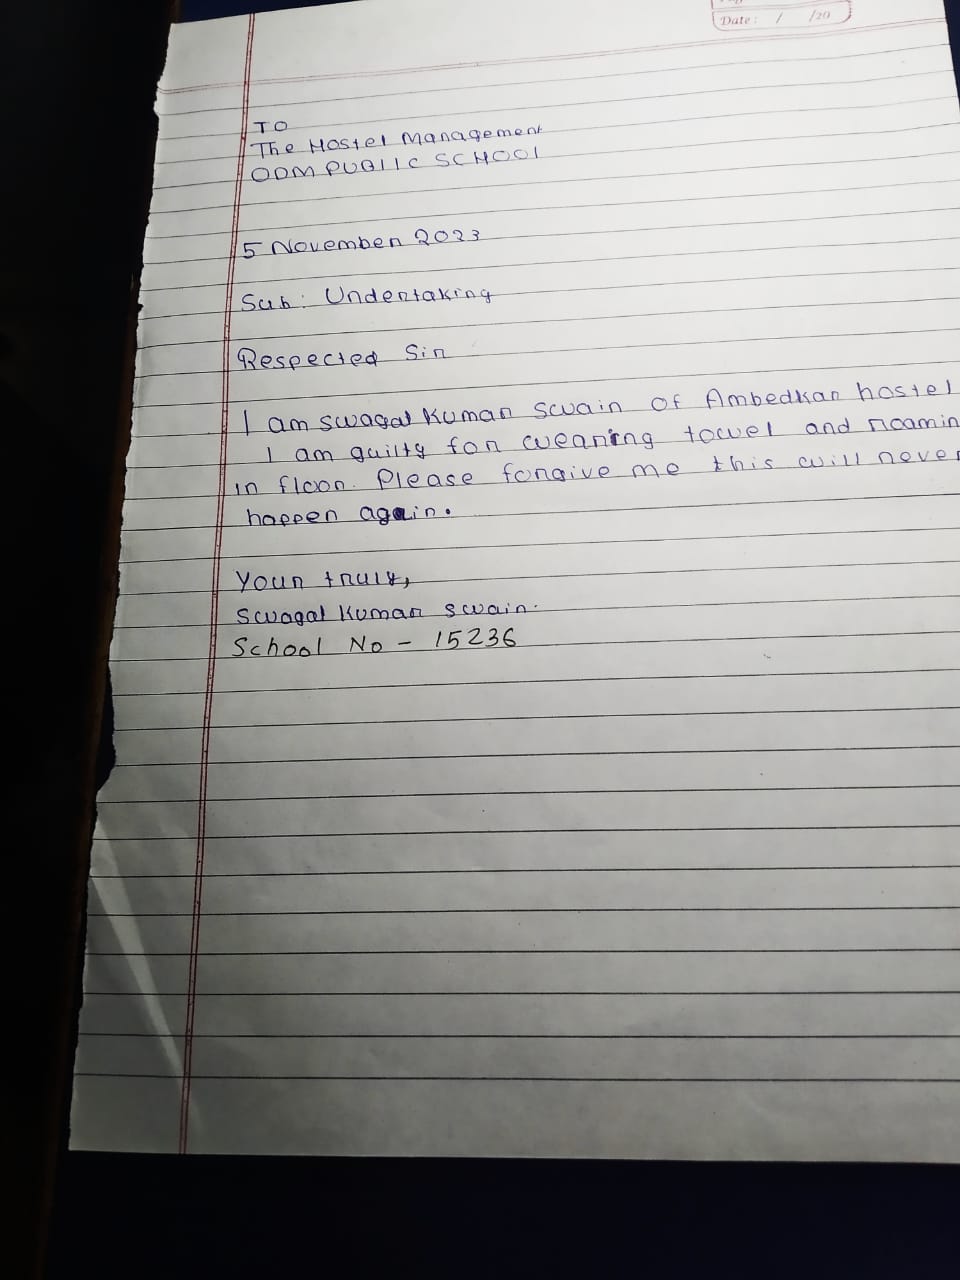 Date: / /20
TO
The Hostel Management
ODM PUBLIC SCHOOL
5 November 2023
Sub: Undertaking
Respected Sir
I am swagat Kumar swain of Ambedkar hostel
I am guilty for wearing towel and roamin
in floor. Please forgive me this will never
happen again.
Your truly,
swagat Kumar swain.
School No - 15236